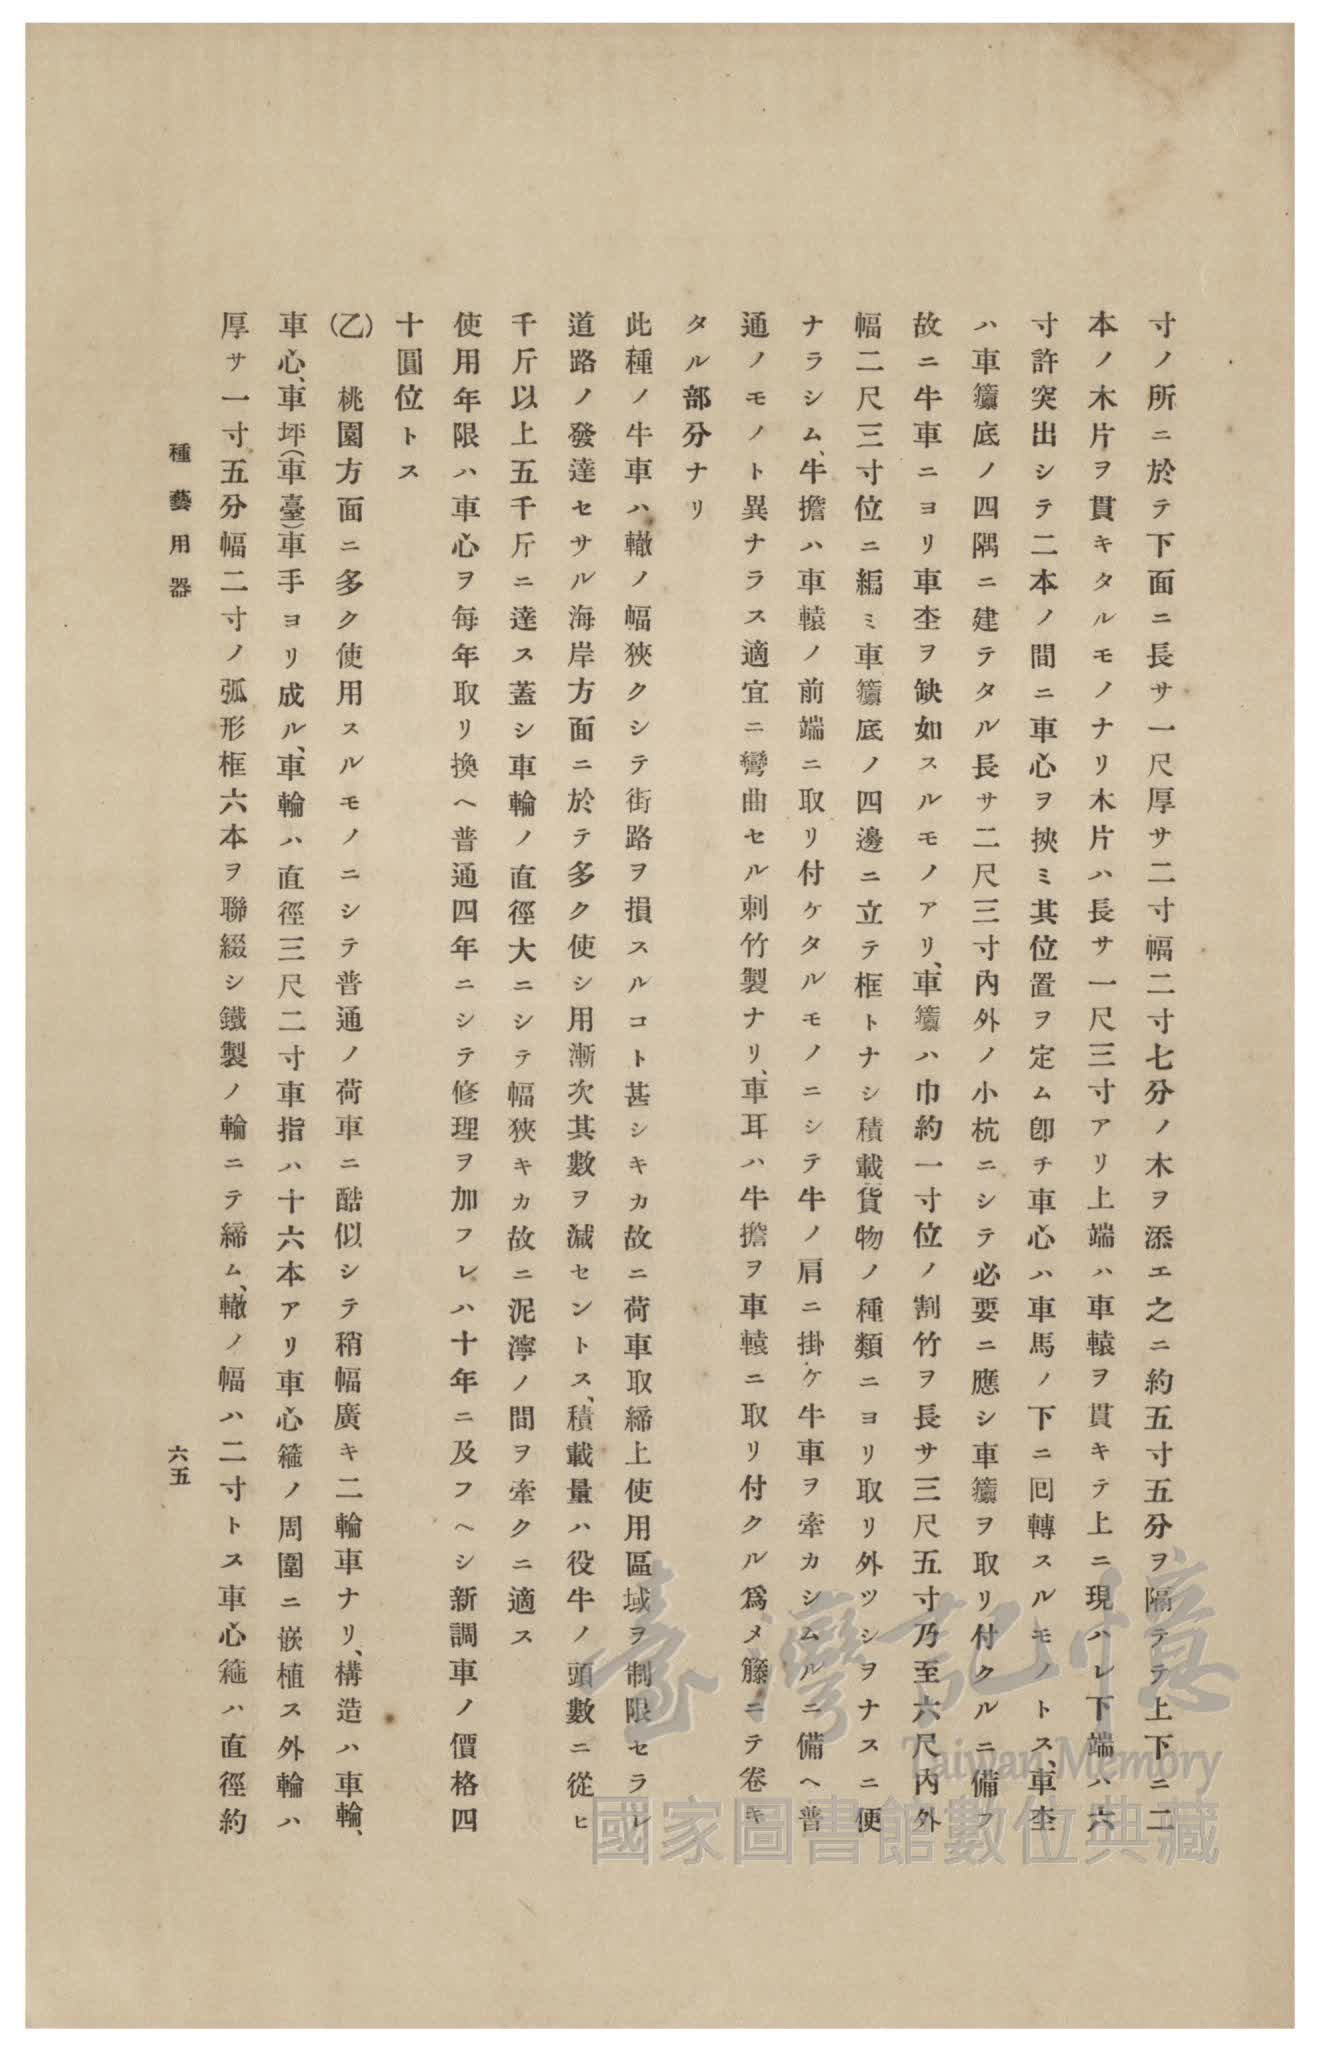 寸ノ所ニ於テ下面ニ長サ一尺厚サ二寸幅二寸七分ノ木ヲ添エ之ニ約五寸五分ヲ隔テテ上下ニ二
本ノ木片ヲ貫キタルモノナリ木片ハ長サ一尺三寸アリ上端ハ車轅ヲ貫キテ上ニ現ハレ下端ハ六
寸許突出シテ二本ノ間ニ車心ヲ挾ミ其位置ヲ定ム卽チ車心ハ車馬ノ下ニ囘轉スルモノトス、車杢
ハ車籫底ノ四隅ニ建テタル長サ二尺三寸內外ノ小杭ニシテ必要ニ應シ車籫ヲ取リ付クルニ備フ
故ニ牛車ニヨリ車杢ヲ缺如スルモノアリ、車籫ハ巾約一寸位ノ割竹ヲ長サ三尺五寸乃至六尺內外
幅二尺三寸位ニ編ミ車籫底ノ四邊ニ立テ框トナシ積載貨物ノ種類ニヨリ取リ外ツシヲナスニ便
ナラシム、牛擔ハ車轅ノ前端ニ取リ付ケタルモノニシテ牛ノ肩ニ掛ケ牛車ヲ牽カシムルニ備ヘ普
通ノモノト異ナラス適宜ニ彎曲セル刺竹製ナリ、車耳ハ牛擔ヲ車轅ニ取リ付クル爲メ籐ニテ卷キ
タル部分ナリ
此種ノ牛車ハ轍ノ幅狹クシテ街路ヲ損スルコト甚シキカ故ニ荷車取締上使用區域ヲ制限セラレ
道路ノ發達セサル海岸方面ニ於テ多ク使シ用漸次其數ヲ減セントス、積載量ハ役牛ノ頭數ニ從ヒ
千斤以上五千斤ニ達ス蓋シ車輪ノ直徑大ニシテ幅狹キカ故ニ泥濘ノ間ヲ牽クニ適ス
使用年限ハ車心ヲ每年取リ換ヘ普通四年ニシテ修理ヲ加フレハ十年ニ及フヘシ新調車ノ價格四
十圓位トス
(乙) 桃園方面ニ多ク使用スルモノニシテ普通ノ荷車ニ酷似シテ稍幅廣キ二輪車ナリ、構造ハ車輪、
車心、車坪(車臺)車手ヨリ成ル、車輪ハ直徑三尺二寸車指ハ十六本アリ車心箍ノ周圍ニ嵌植ス外輪ハ
厚サ一寸五分幅二寸ノ弧形框六本ヲ聯綴シ鐵製ノ輪ニテ締ム、轍ノ幅ハ二寸トス車心箍ハ直徑約
種藝用器
六五
臺灣記憶
Taiwan Memory
國家圖書館數位典藏